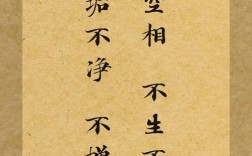 空相 不生不
垢不净 不增